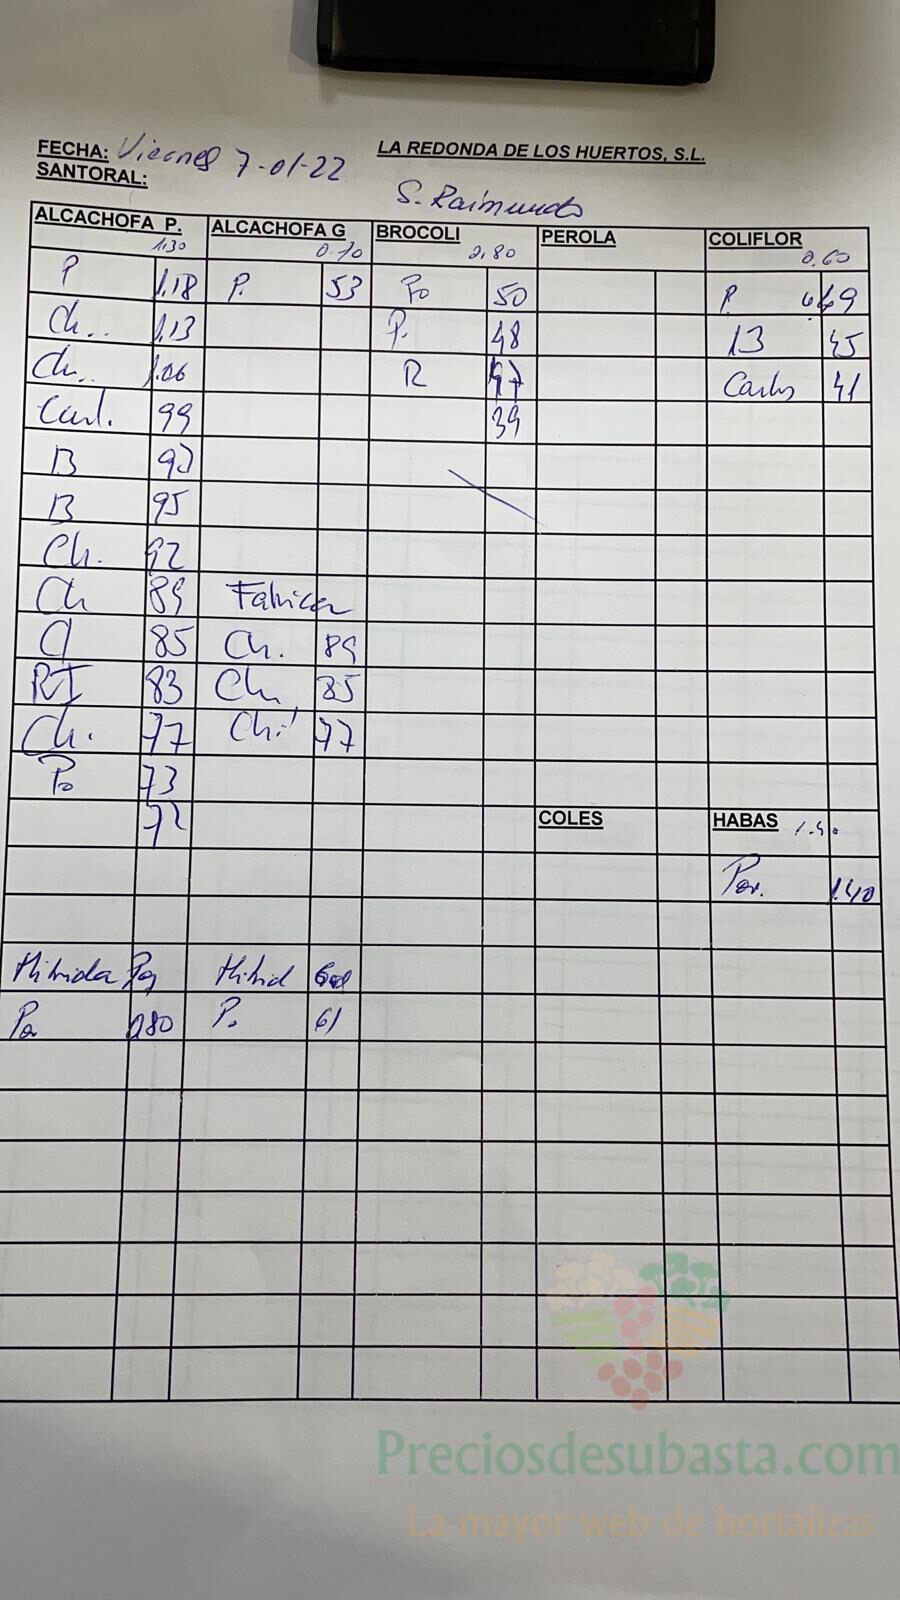 FECHA: Viernes 7-01-22 LA REDONDA DE LOS HUERTOS, S.L.
SANTORAL: S. Raimundo
ALCACHOFA P. ALCACHOFA G BROCOLI PEROLA COLIFLOR
1.30 0.70 0.80 0.60
P 1.18 P. 53 Po 50 P. 49
Ch.. 1.13 P. 48 B 45
Ch.. 1.06 R 47 Carlos 41
Carl. 99 39
B 97
B 95
Ch. 92
Ch 89 Fabrica
Cl 85 Ch. 89
RI 83 Ch 85
Ch. 77 Ch. 77
Po 73
72 COLES HABAS 1.50
Par. 1.40
Hibrida Peq Hibrid
Pa 0,80 P. 61
Preciosdesubasta.com
La mayor web de hortalizas